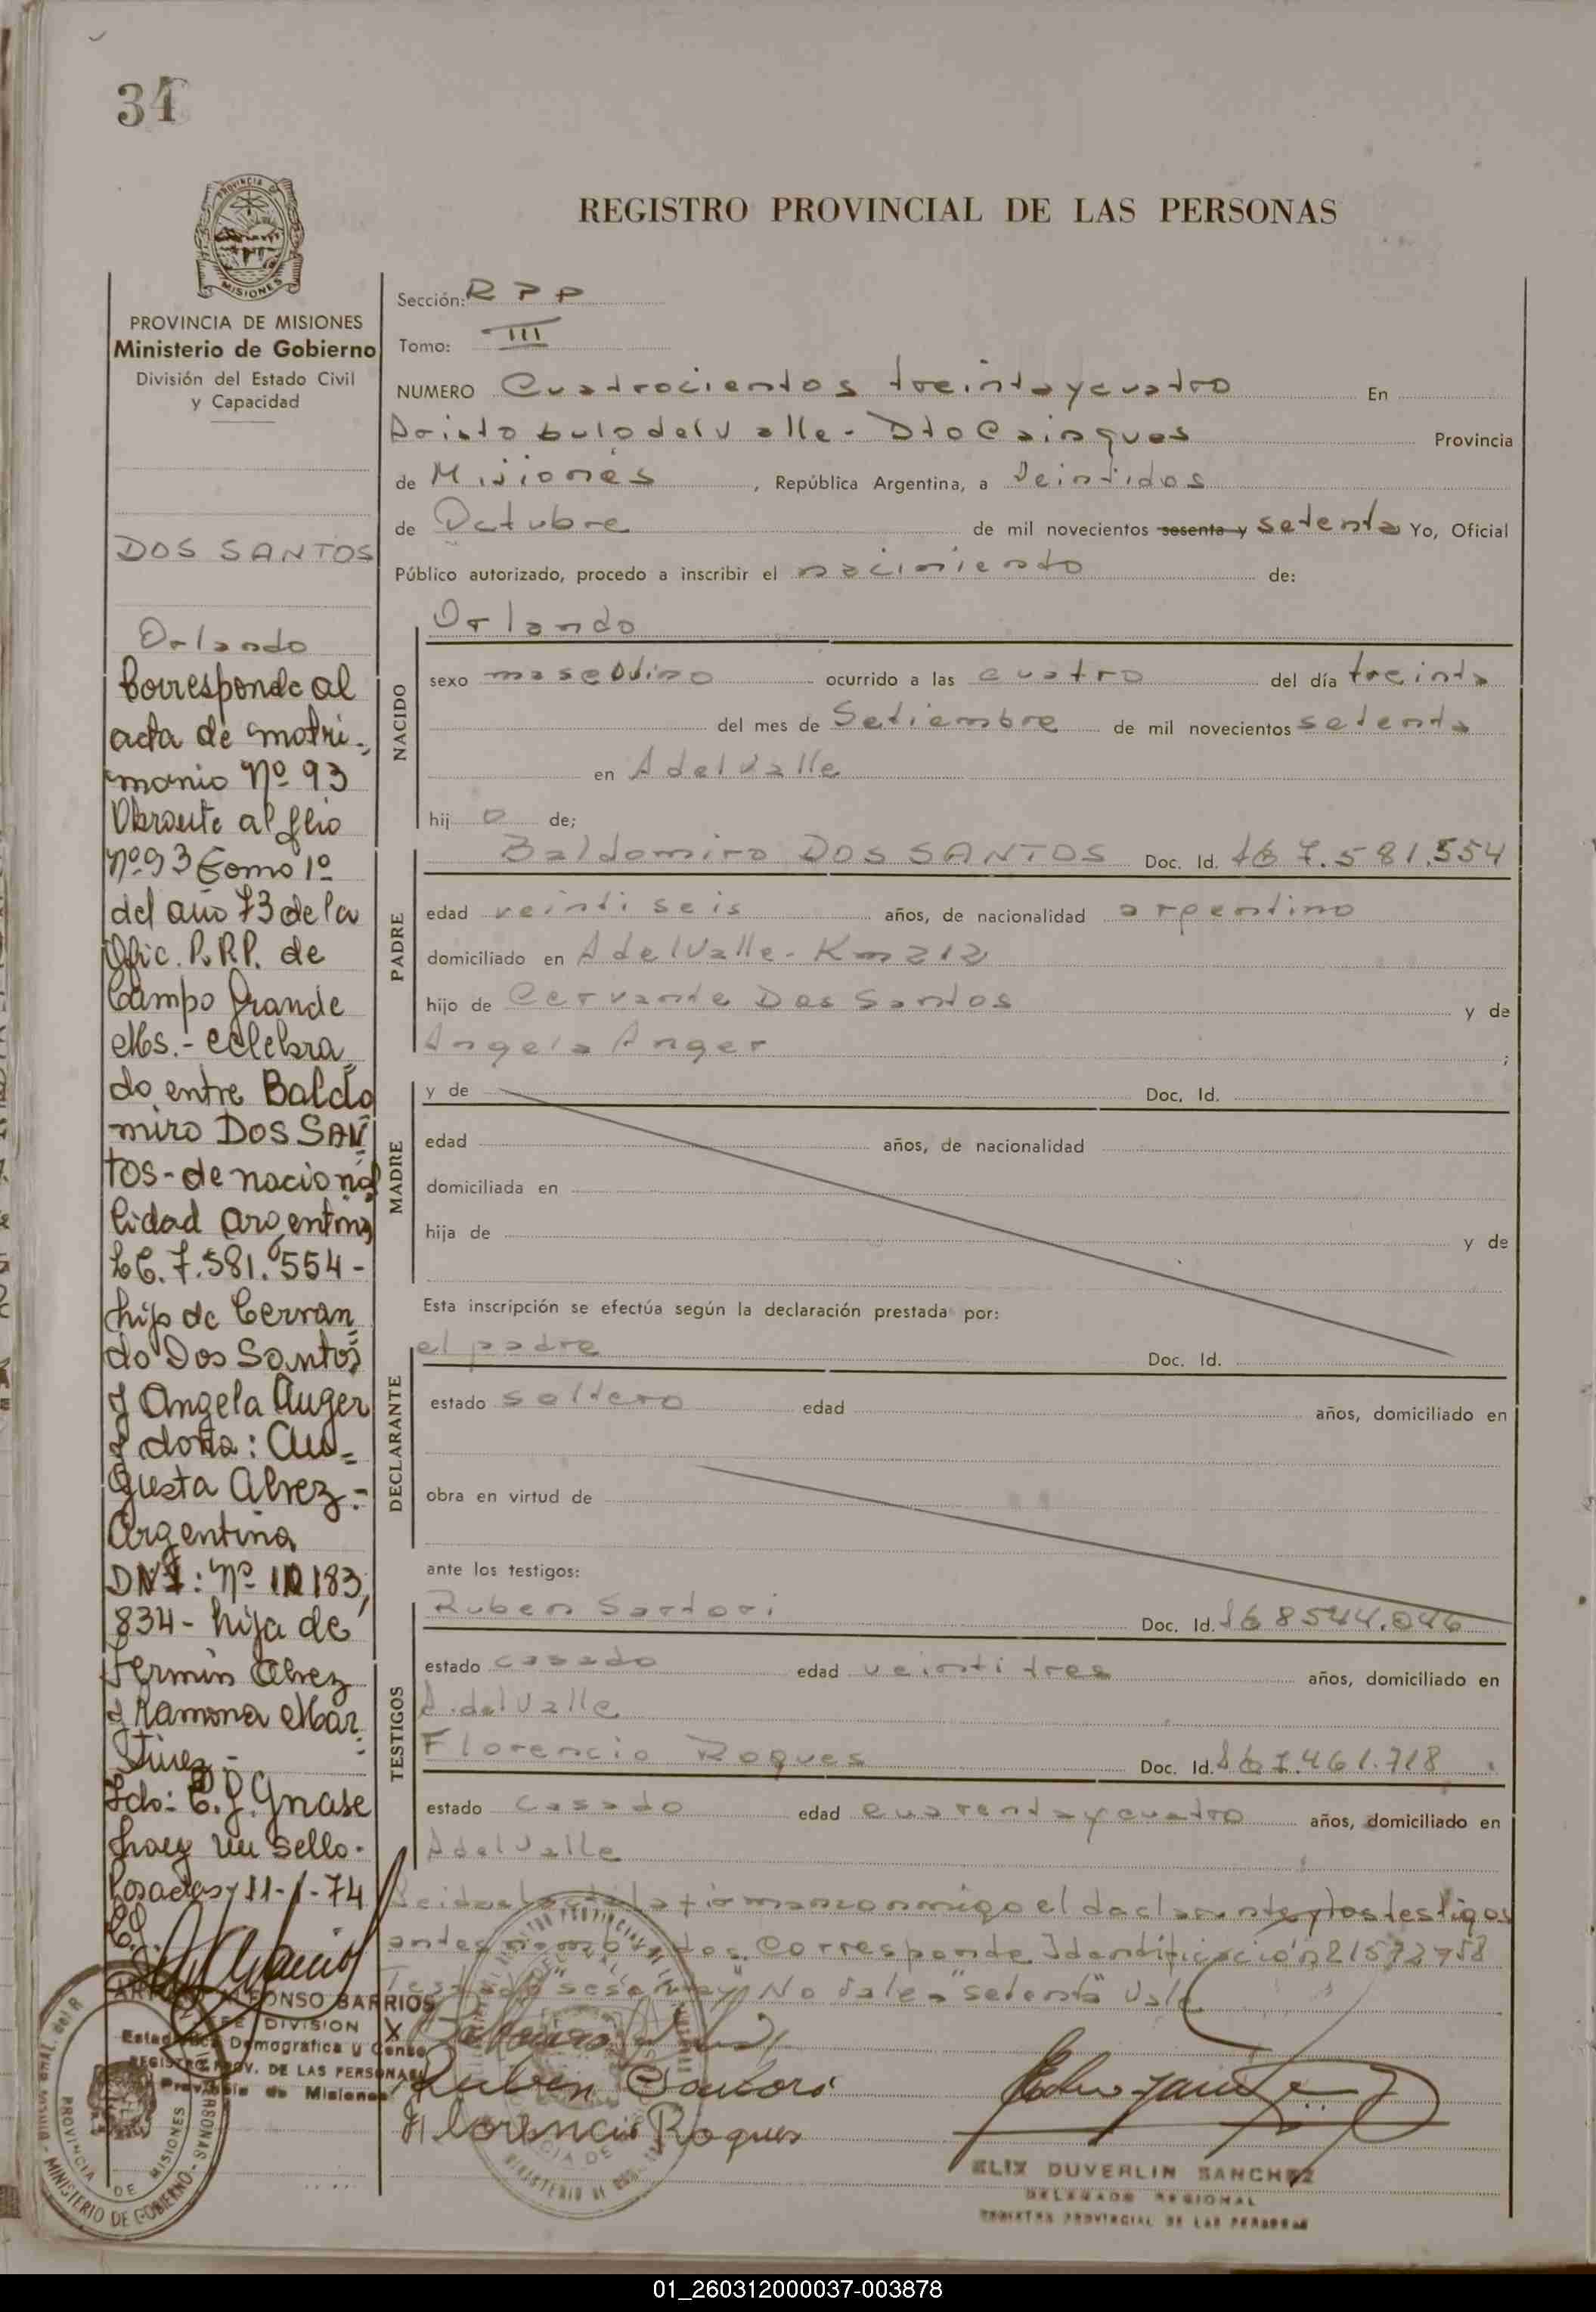 34
REGISTRO PROVINCIAL DE LAS PERSONAS
PROVINCIA DE MISIONES
Ministerio de Gobierno
División del Estado Civil
y Capacidad
DOS SANTOS
Orlando
Corresponde al
acta de matri-
monio Nº 93
Obrante al flio
Nº 93 Tomo 1º
del año 73 de la
Ofic. P.R.P. de
Campo Grande
Ms.- celebra
do entre Baldo
miro DOS SAN
TOS - de naciona
lidad argentina
LE. 7.581.554 -
hijo de Cerván
do Dos Santos
y Angela Auger
y doña: Au=
gusta Alvez.-
Argentina
DNI: Nº 10183,
834 - hija de
Fermin Alvez
y Ramona Mar
tinez -
Fdo: E.J. Gnase
hay un sello.
Posadas, 11-1-74
ALFONSO BARRIOS
JEFE DIVISION
Estadística Demografica y Censo
REGISTRO PROV. DE LAS PERSONAS
Provincia de Misiones
Sección: R P P
Tomo: III
NUMERO Cuatrocientos treinta y cuatro En
Aristobulo del Valle - Dto Cainguas Provincia
de Misiones, República Argentina, a Veintidos
de Octubre de mil novecientos sesenta y setenta Yo, Oficial
Público autorizado, procedo a inscribir el nacimiento de:
NACIDO
Orlando
sexo masculino ocurrido a las cuatro del día treinta
del mes de Setiembre de mil novecientos setenta
en A del Valle
hij o de;
PADRE
Baldomiro DOS SANTOS Doc. Id. LE 7.581.554
edad veintiseis años, de nacionalidad argentino
domiciliado en A del Valle - Km 212
hijo de Cervande Dos Santos y de
Angela Anger ;
MADRE
y de Doc. Id.
edad años, de nacionalidad
domiciliada en
hija de y de
Esta inscripción se efectúa según la declaración prestada por:
DECLARANTE
el padre Doc. Id.
estado soltero edad años, domiciliado en
obra en virtud de
ante los testigos:
TESTIGOS
Ruben Sartori Doc. Id. LE 8544.046
estado casado edad veintitres años, domiciliado en
A. del Valle
Florencio Roques Doc. Id. LE 7.461.718
estado casado edad cuarenta y cuatro años, domiciliado en
A del Valle
Leida el acta la firman conmigo el declarante y los testigos
antes nombrados. Corresponde Identificación 21572758
Testado "sesenta y" No Vale - "setenta" Vale
Ruben Sartori
Florencio Roques
ELIX DUVERLIN SANCHEZ
DELEGADO REGIONAL
REGISTRO PROVINCIAL DE LAS PERSONAS
01_260312000037-003878